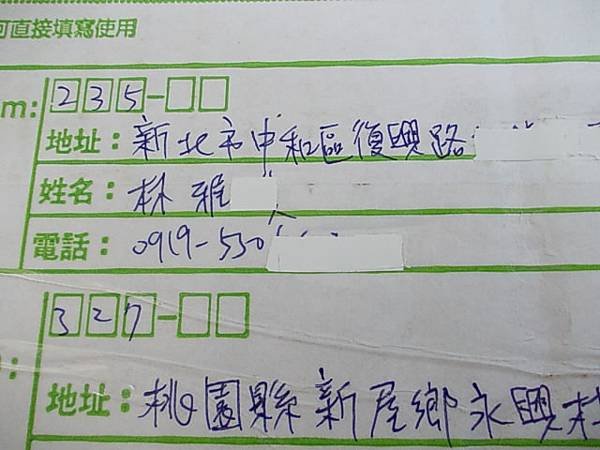 可直接填寫使用
m: 235-
地址：新北市中和區復興路
姓名：林雅
電話：0919-530
327-
地址：桃園縣新屋鄉永興村